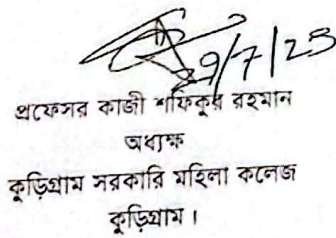 29/7/23
প্রফেসর কাজী শফিকুর রহমান
অধ্যক্ষ
কুড়িগ্রাম সরকারি মহিলা কলেজ
কুড়িগ্রাম।